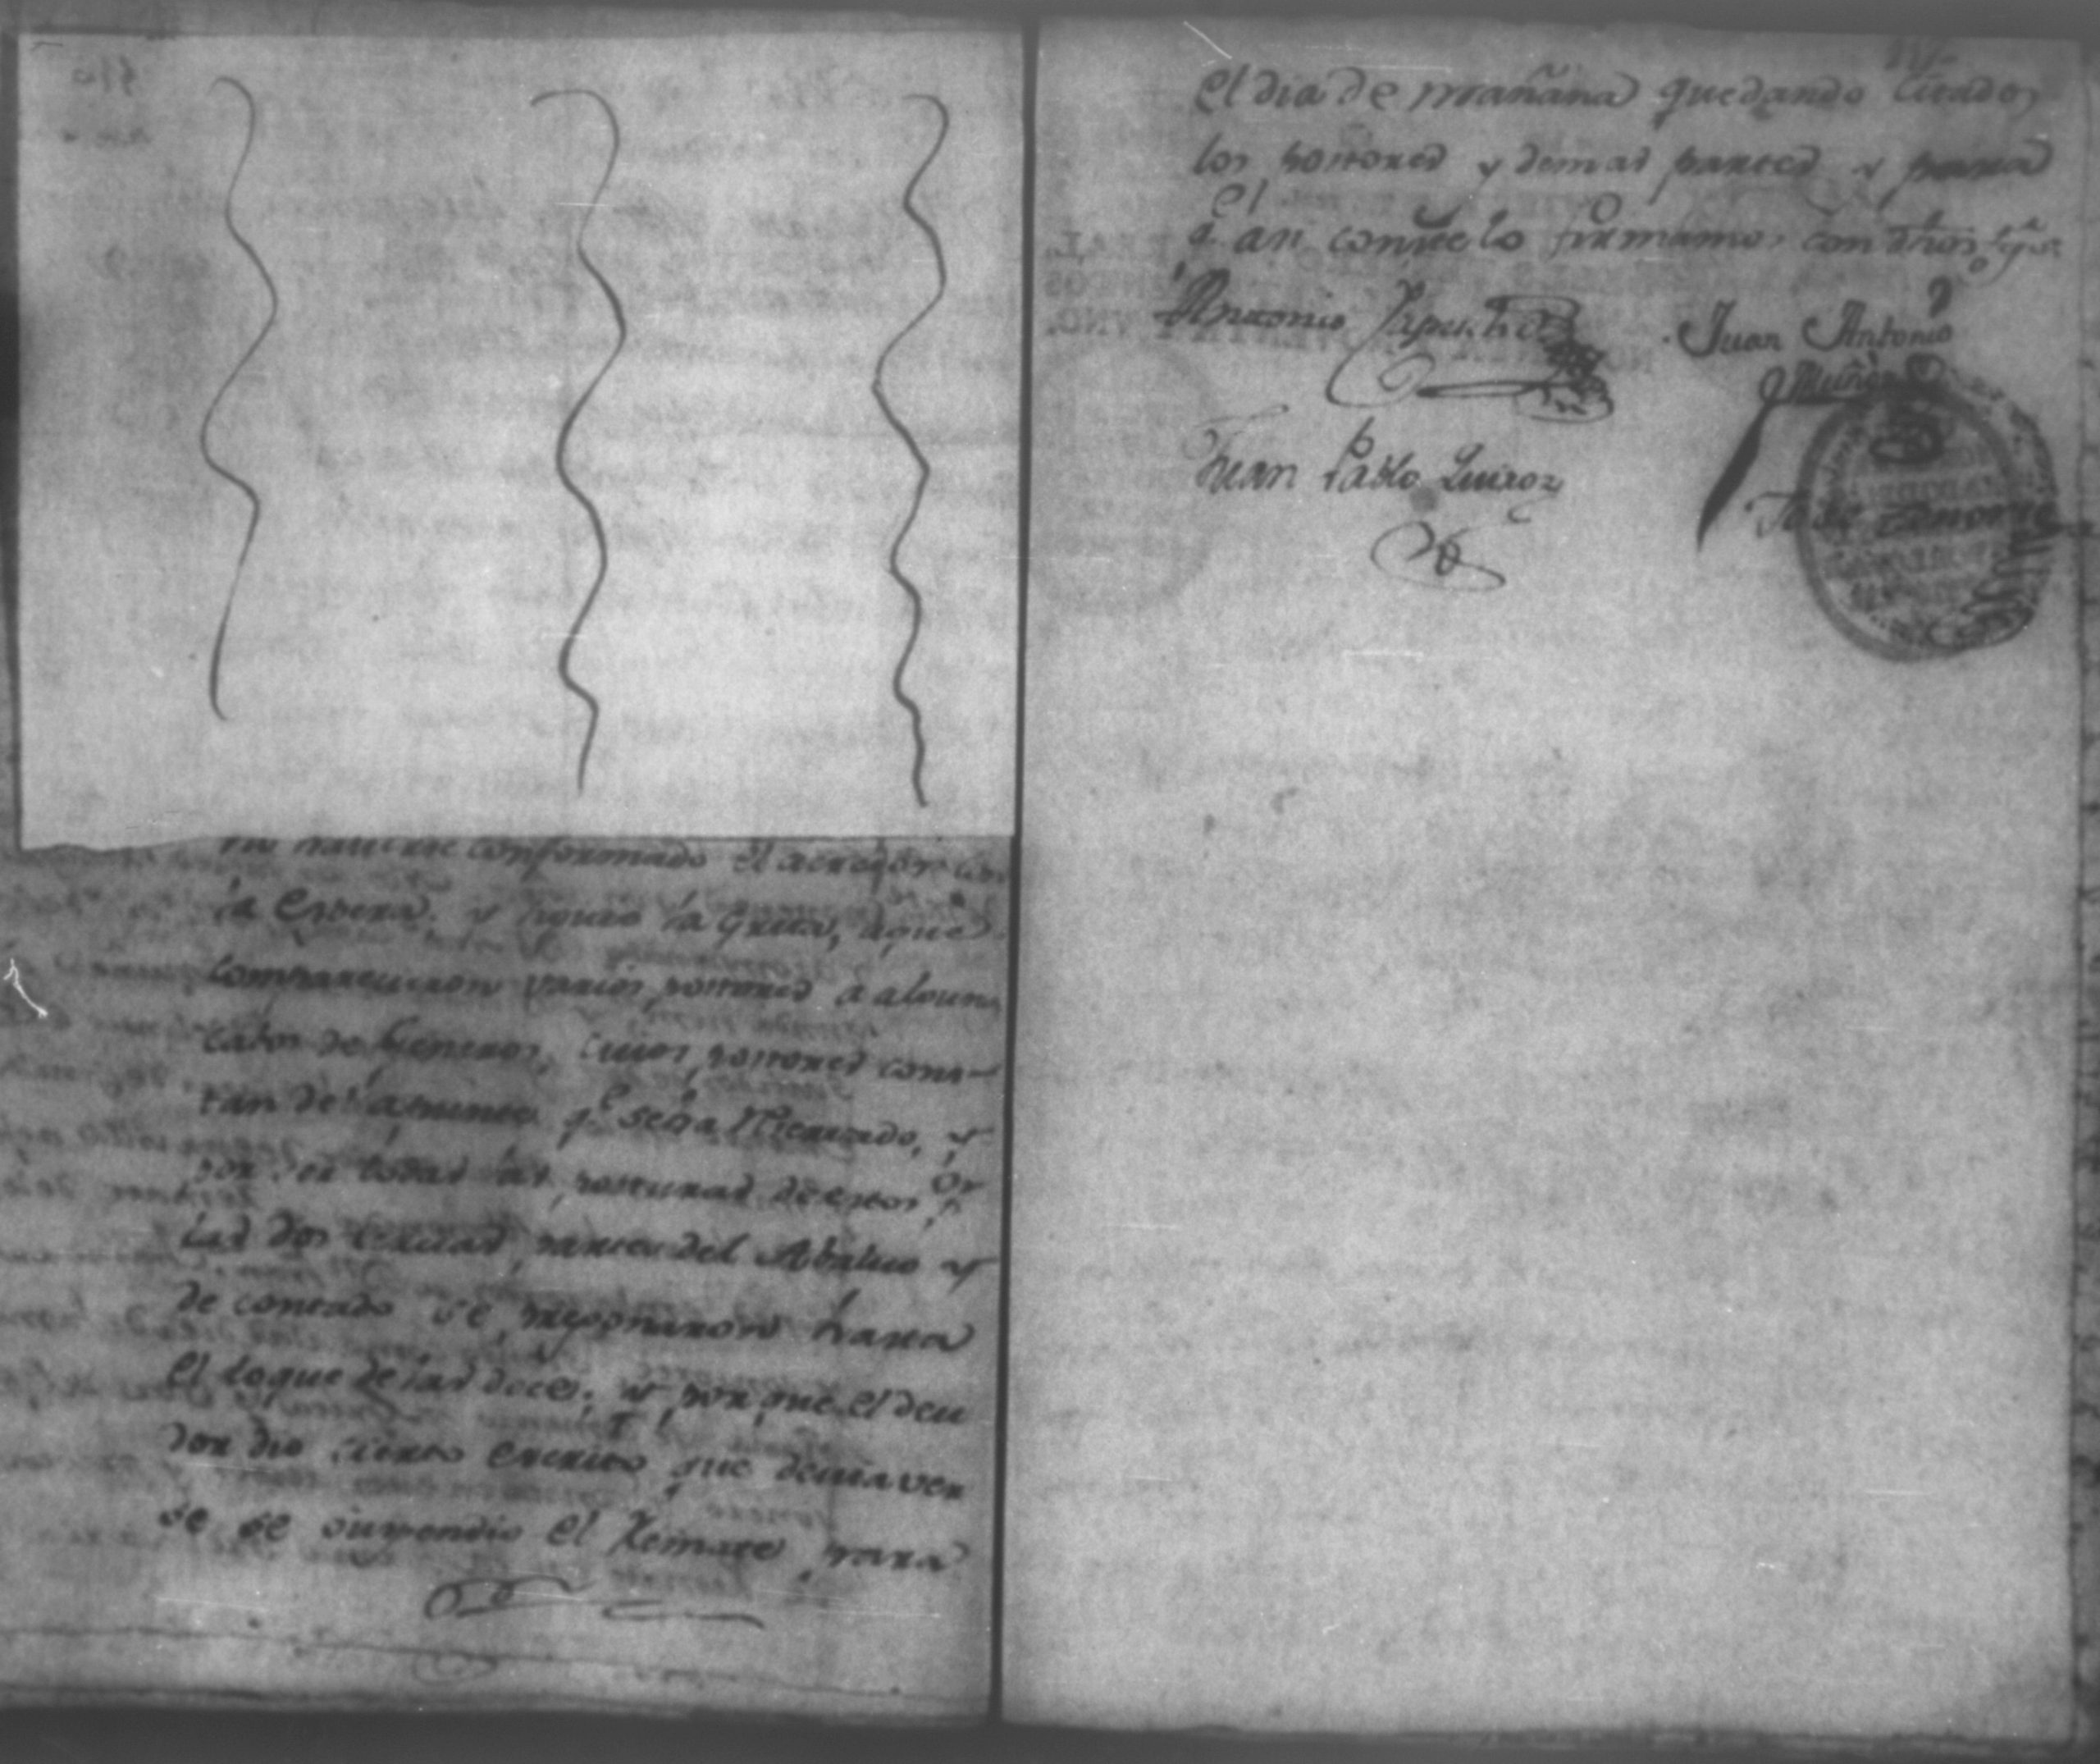 conformado el acreedor con
la espera. y siguio la grita, aque
comparecieron varios postores a alguna
cabos de generos, cuios postores cons-
tan del apunte q.e se há Mencionado, y
por ser todas las posturas de estos p.or
las dos tercias partes del Abaluo y
de contado se pregonaron hasta
el toque de las doce, y porque el deu
dor dio cierto escrito que devia ver
se se suspendio el Remate para
el dia de mañana quedando citados
los postores y demas partes y para
el
q.e asi conste lo firmamos con dhos tgos
Antonio
Juan Antonio
Muñoz
Juan Pablo Quiroz
Jose